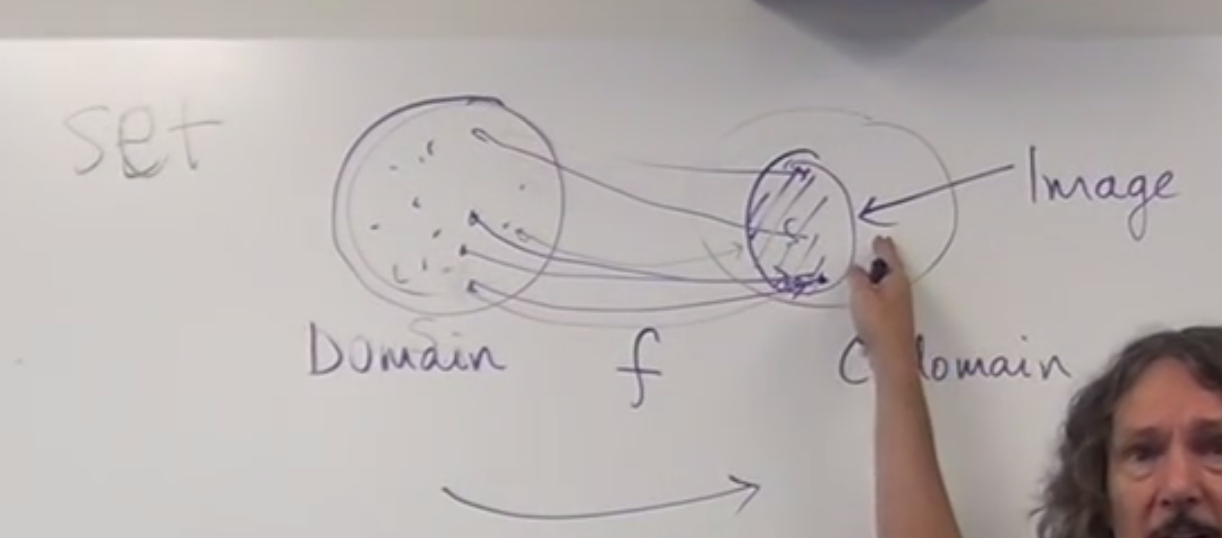 set
Image
Domain
f
C domain